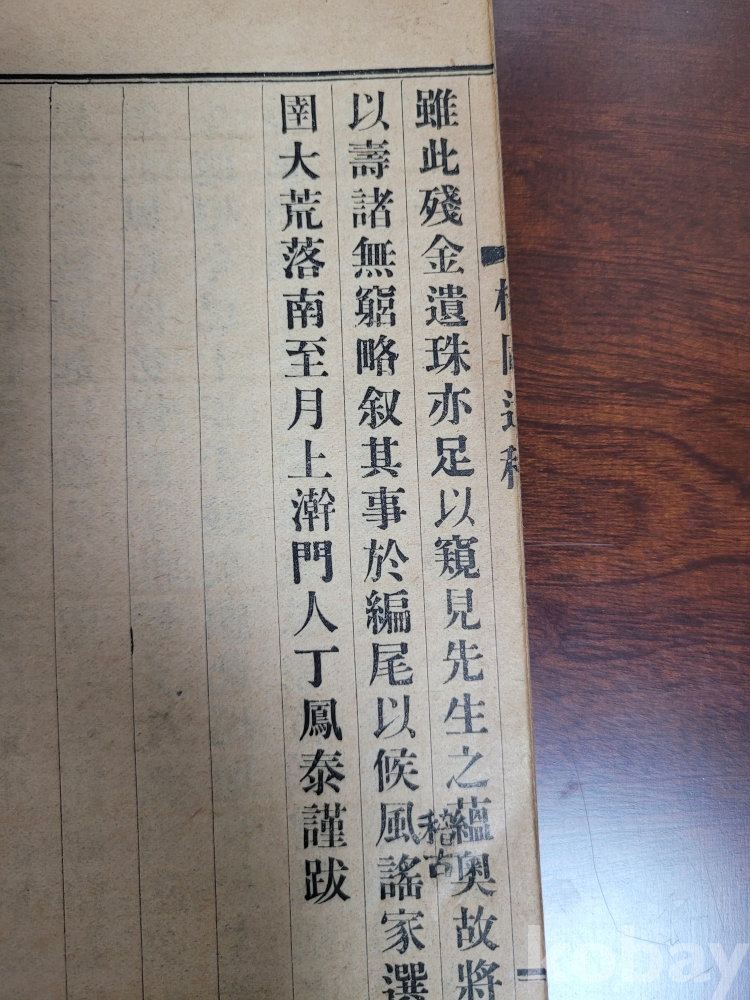 雖此殘金遺珠亦足以窺見先生之蘊奧故將
稽古
以壽諸無窮略叙其事於編尾以候風謠家選
圉大荒落南至月上澣門人丁鳳泰謹跋
遺稿
kobay